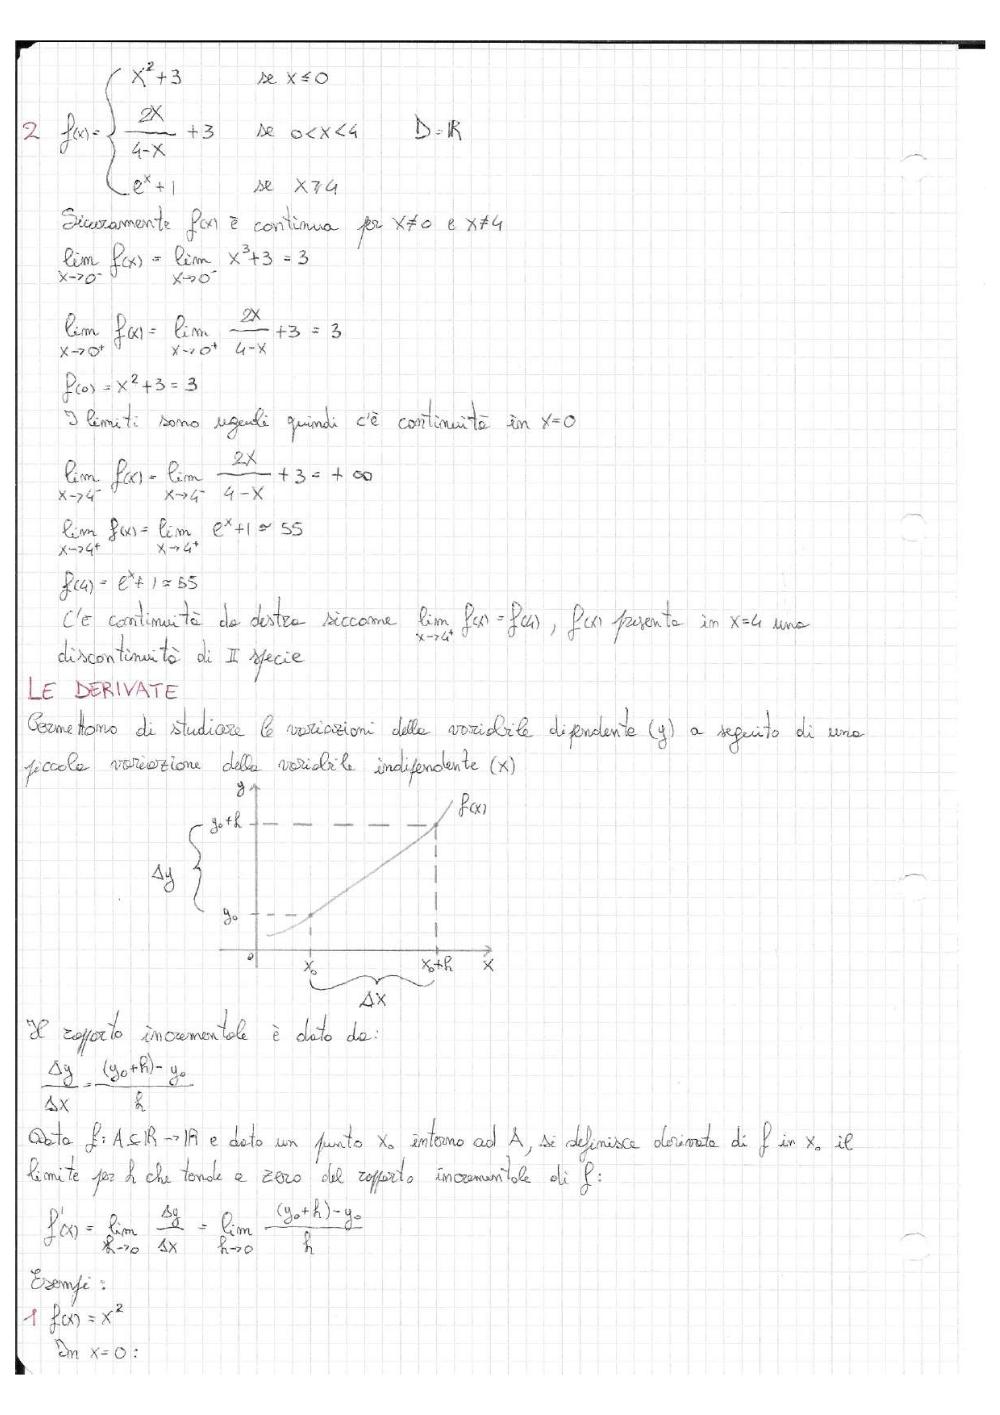 x²+3 se x≤0
2 f(x)= 2x/(4-x) +3 se 0<x<4 D=ℝ
eˣ+1 se x≥4
Sicuramente f(x) è continua per x≠0 e x≠4
lim x→0⁻ f(x) = lim x→0⁻ x³+3 = 3
lim x→0⁺ f(x) = lim x→0⁺ 2x/(4-x) +3 = 3
f(0) = x²+3 = 3
I limiti sono uguali quindi c'è continuità in x=0
lim x→4⁻ f(x) = lim x→4⁻ 2x/(4-x) +3 = +∞
lim x→4⁺ f(x) = lim x→4⁺ eˣ+1 ≃ 55
f(4) = eˣ+1 ≃ 55
C'è continuità da destra siccome lim x→4⁺ f(x) = f(4), f(x) presenta in x=4 una
discontinuità di II specie
LE DERIVATE
Permettono di studiare le variazioni della variabile dipendente (y) a seguito di una
piccola variazione della variabile indipendente (x)
y
f(x)
y₀+h
Δy
y₀
0 x₀ x₀+h x
Δx
Il rapporto incrementale è dato da:
Δy/Δx = ((y₀+h)-y₀)/h
Data f: A⊆ℝ→ℝ e dato un punto x₀ interno ad A, si definisce derivata di f in x₀ il
limite per h che tende a zero del rapporto incrementale di f:
f'(x) = lim h→0 Δy/Δx = lim h→0 ((y₀+h)-y₀)/h
Esempi:
1 f(x) = x²
In x=0: